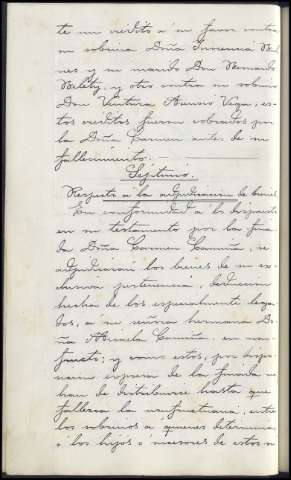 te un crédito á su favor contra
su sobrina Doña Inocencia
nes y su marido Don Bernardo
y otro contra su sobrino
Don Ventura Bueno Vega, es-
tos créditos fueron cobrados por
la Doña Carmen antes de su
fallecimiento.
Séptimo.
Respecto á la adjudicación de bienes
En conformidad á lo dispuesto
en su testamento por la fina-
da Doña Carmen se
adjudicarán los bienes de su ex-
clusiva pertenencia, deducción
hecha de los especialmente lega-
dos, á su señora hermana Do-
ña en usu-
fructo; y como estos, por dispo-
sición expresa de la finada se
han de distribuirse hasta que
fallezca la usufructuaria, entre
los sobrinos á quienes determina
ó los hijos ó sucesores de estos si